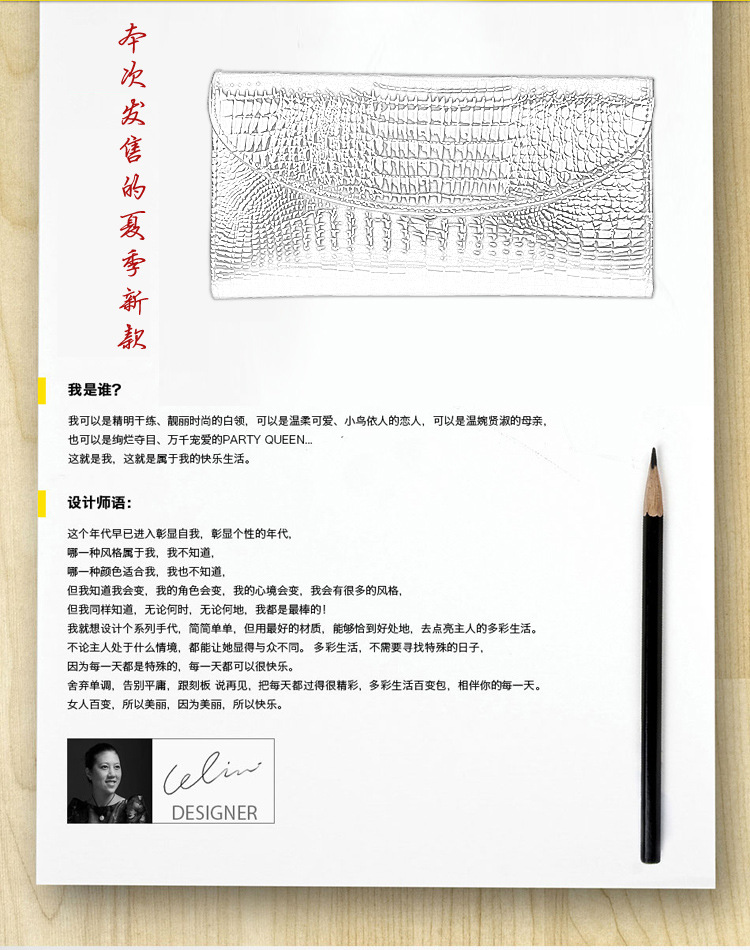 本次发售的夏季新款
我是谁?
我可以是精明干练、靓丽时尚的白领，可以是温柔可爱、小鸟依人的恋人，可以是温婉贤淑的母亲，
也可以是绚烂夺目、万千宠爱的PARTY QUEEN...
这就是我，这就是属于我的快乐生活。
设计师语：
这个年代早已进入彰显自我，彰显个性的年代，
哪一种风格属于我，我不知道，
哪一种颜色适合我，我也不知道，
但我知道我会变，我的角色会变，我的心境会变，我会有很多的风格，
但我同样知道，无论何时，无论何地，我都是最棒的！
我就想设计个系列手代，简简单单，但用最好的材质，能够恰到好处地，去点亮主人的多彩生活。
不论主人处于什么情境，都能让她显得与众不同。 多彩生活，不需要寻找特殊的日子，
因为每一天都是特殊的，每一天都可以很快乐。
舍弃单调，告别平庸，跟刻板 说再见，把每天都过得很精彩，多彩生活百变包，相伴你的每一天。
女人百变，所以美丽，因为美丽，所以快乐。
Celin
DESIGNER